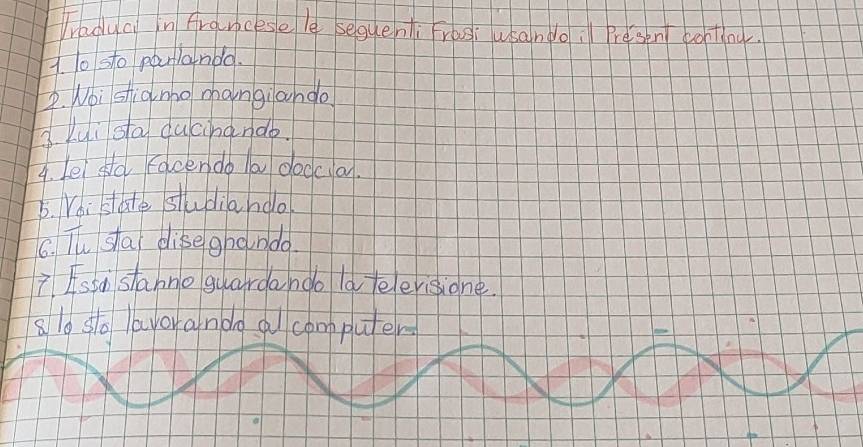 Traduci in francese le seguenti frasi usando il Présent continu.
1. Io sto parlando.
2. Noi stiamo mangiando.
3. Lui sta cucinando.
4. Lei sta facendo la doccia.
5. Voi state studiando.
6. Tu stai disegnando.
7. Essi stanno guardando la televisione.
8. Io sto lavorando al computer.